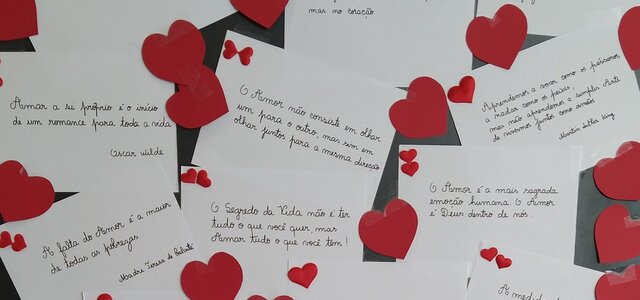 mas no coração
Amar a si próprio é o início
de um romance para toda a vida
Oscar Wilde
O Amor não consiste em olhar
um para o outro, mas sim em
olhar juntos para a mesma direção
Aprendemos a voar como os pássaros,
a nadar como os peixes,
mas não aprendemos a simples Arte
de vivermos juntos como irmãos
Martin Luther King
A falta do Amor é a maior
de todas as pobrezas
Madre Teresa de Calcutá
O Segredo da Vida não é ter
tudo o que você quer, mas
Amar tudo o que você tem!
O Amor é a mais sagrada
emoção humana. O Amor
é Deus dentro de nós
A medida